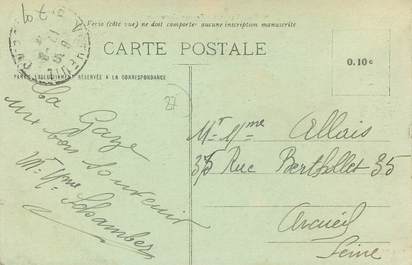 Verso (côté vue) ne doit comporter aucune inscription manuscrite
CARTE POSTALE
PARTIE EXCLUSIVEMENT RÉSERVÉE A LA CORRESPONDANCE
0.10c
27
La Gaze
un bon souvenir
Mr Mme
Mr Mme Allais
35 Rue Berthollet 35
Arcueil
Seine